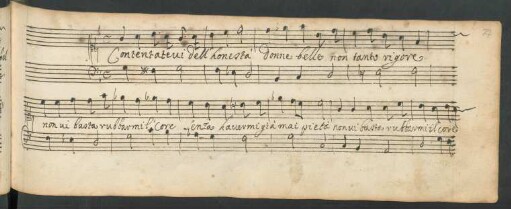 Contentatevi dell'honestà donne belle non tanto rigore
non vi basta rubbarmi il Core senza havermi già mai pietà non vi basta rubbarmi il core